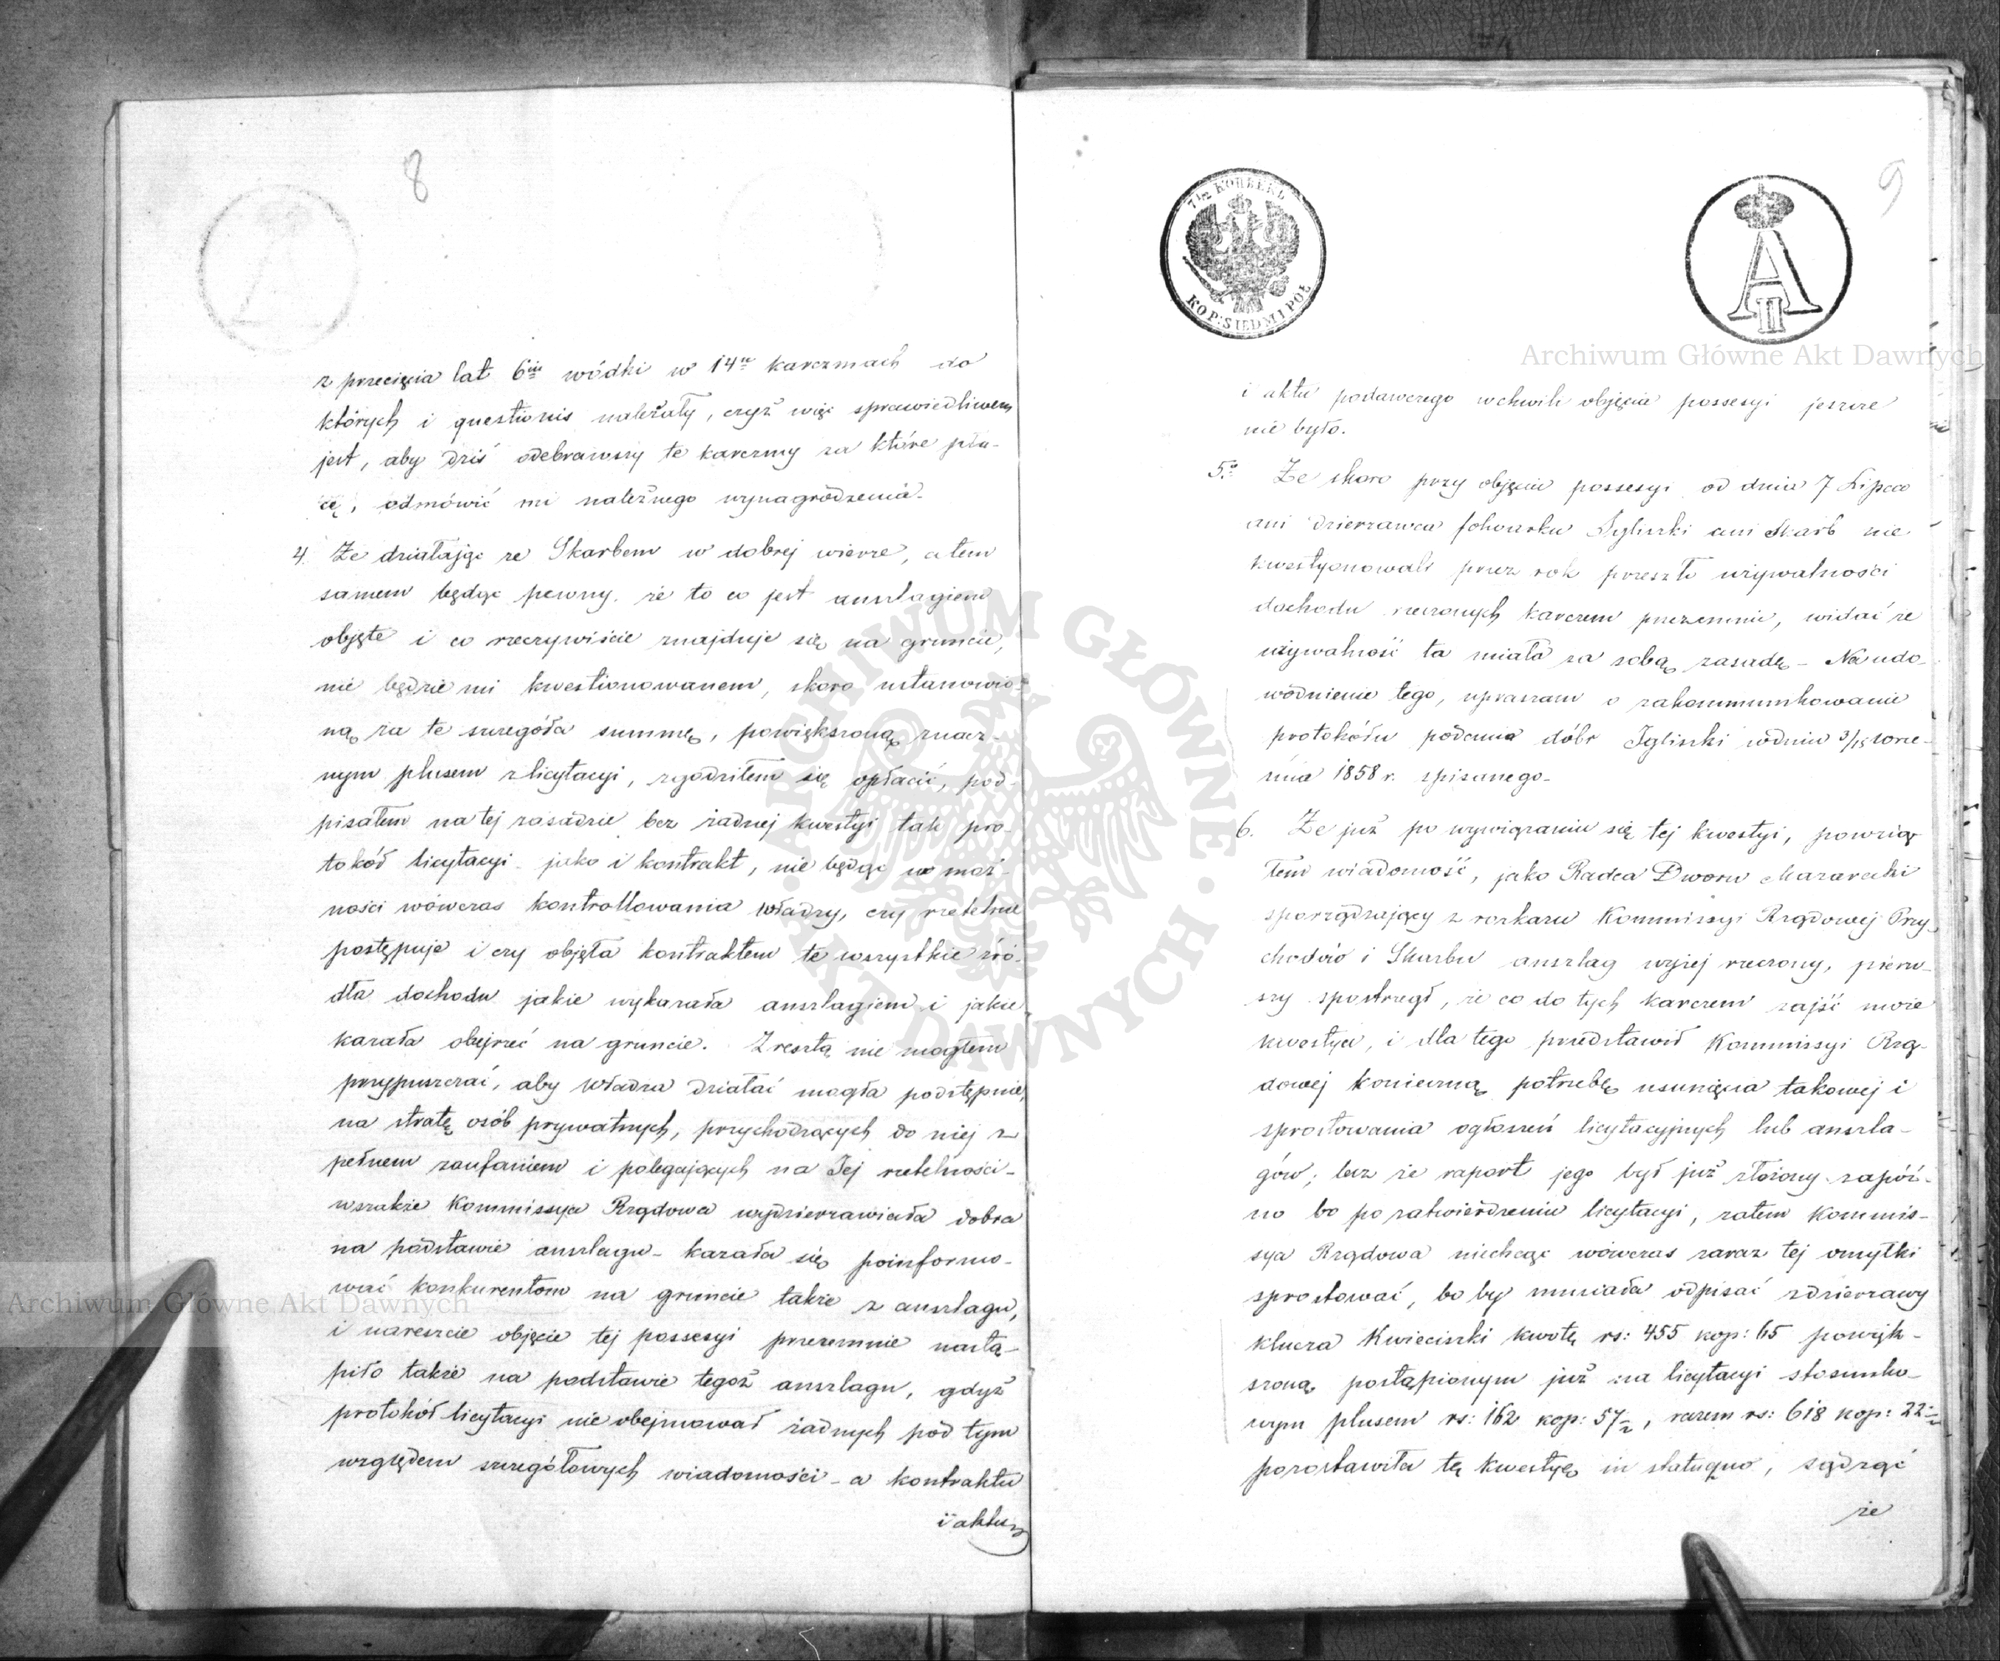 8
z przecięcia lat 6iu wódki w 14u karczmach do
których i questionis należały, czyż więc sprawiedliwem
jest, aby dziś odebrawszy te karczmy za które pła-
cę, odmówić mi należnego wynagrodzenia.
4. Że działając ze Skarbem w dobrej wierze, a tem
samem będąc pewny, że to co jest anszlagiem
objęte i co rzeczywiście znajduje się na gruncie,
nie będzie mi kwestionowanem, skoro ustanowio-
ną za te szczegóła summę, powiększoną znacz-
nym plusem z licytacyi, zgodziłem się opłacić, pod-
pisałem na tej zasadzie bez żadnej kwestyi tak pro-
tokół licytacyi jako i kontrakt, nie będąc w moż-
ności wówczas kontrollowania władzy, czy rzetelnie
postępuje i czy objęła kontraktem te wszystkie źró-
dła dochodu jakie wykazała anszlagiem i jakie
kazała obejrzeć na gruncie. Zresztą nie mogłem
przypuszczać, aby władza działać mogła podstępnie,
na stratę osób prywatnych, przychodzących do niej z
pełnem zaufaniem i polegających na Jej rzetelności-
wszakże Kommissya Rządowa wydzierzawiała dobra
na podstawie anszlagu- kazała się poinformo-
wać konkurentom na gruncie także z anszlagu,
i nareszcie objęcie tej possesyi przezemnie nastą-
piło także na podstawie tegoż anszlagu, gdyż
protokół licytacyi nie obejmował żadnych pod tym
względem szczegółowych wiadomości- a kontraktu
i aktu
9
7 1/2 КОПѢЕКЪ
KOP: SIEDM I PÓŁ
A II
i aktu podawczego wchwili objęcia possesyi jeszcze
nie było.
5o Że skoro przy objęciu possesyi od dnia 7 Lipca
ani dzierzawca folwarku Iglinki ani Skarb nie
kwestyonowali przez rok przeszło używalności
dochodu rzeczonych karczem przezemnie, widać że
używalność ta miała za sobą zasadę- Na udo-
wodnienie tego, upraszam o zakommunikowanie
protokółu podania dóbr Iglinki wdniu 3/15 Wrze-
śnia 1858 r. spisanego-
6. Że już po wywiązaniu się tej kwestyi, powzią-
łem wiadomość, jako Radca Dworu Mazaracki
sporządzający z rozkazu Kommissyi Rządowej Przy-
chodów i Skarbu anszlag wyżej rzeczony, pierw-
szy spostrzegł, że co do tych karczem zajść może
kwestya, i dla tego przedstawił Kommissyi Rzą-
dowej konieczną potrzebę usunięcia takowej i
sprostowania ogłoszeń licytacyjnych lub anszla-
gów; lecz że raport jego był już złożony zapóź-
no bo po zatwierdzeniu licytacyi, zatem Kommis-
sya Rządowa niechcąc wówczas zaraz tej omyłki
sprostować, bo by musiała odpisać zdzierzawy
klucza Kwiecinki kwotę rs: 455 kop: 65 powięk-
szoną postąpionym już na licytacyi stosunko-
wym plusem rs: 162 kop: 57 1/2, razem rs: 618 kop: 22 1/2
pozostawiła tę kwestyę in statuquo, sądząc
że
Archiwum Główne Akt Dawnych
Archiwum Główne Akt Dawnych
ARCHIWUM GŁÓWNE · AKT DAWNYCH ·